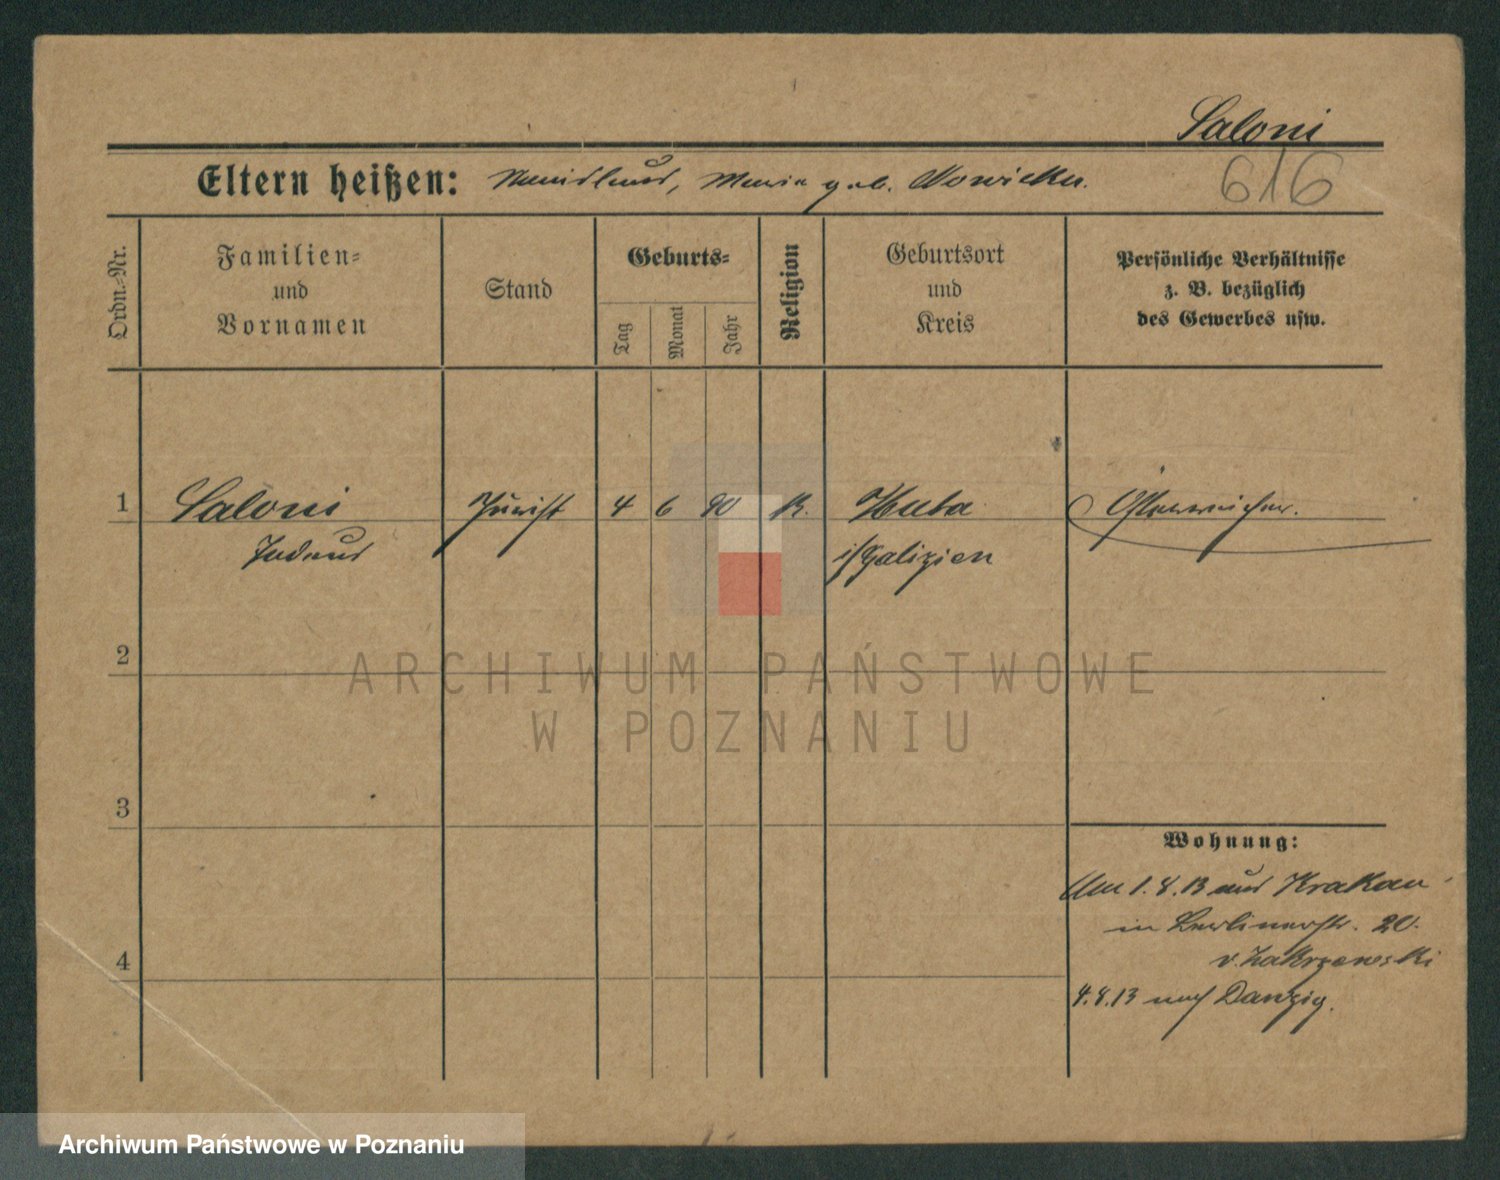 Saloni
Eltern heißen: Maria geb. Nowicka.
616
Ordn.-Nr.
Familien-
und
Vornamen
Stand
Geburts-
Tag
Monat
Jahr
Religion
Geburtsort
und
Kreis
Persönliche Verhältnisse
z. B. bezüglich
des Gewerbes usw.
1 Saloni Jurist 4 6 90 K. Huta Österreicher.
i/Galizien
2
ARCHIWUM PAŃSTWOWE
W POZNANIU
3
Wohnung:
Am 1.8.13 aus Krakau
in Berlinerstr. 20.
v. Zakrzewski
4
4.8.13 nach Danzig.
Archiwum Państwowe w Poznaniu